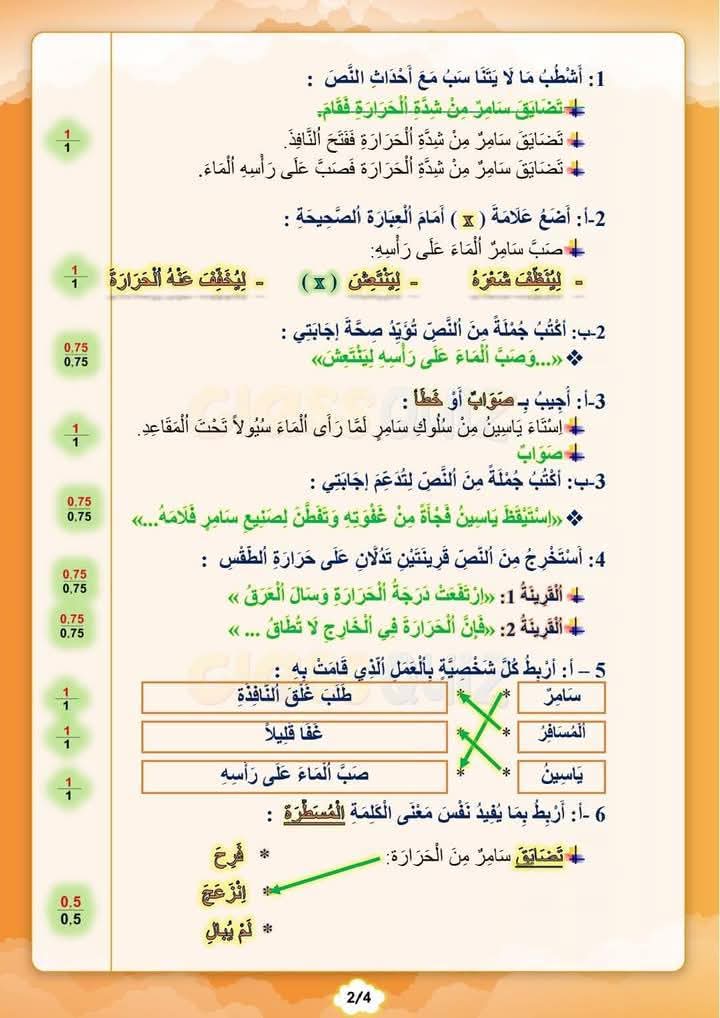 1: أَشْطُبُ مَا لَا يَتَنَا سَبُ مَعَ أَحْدَاثِ النَّصِّ :
تَضَايَقَ سَامِرٌ مِنْ شِدَّةِ اُلْحَرَارَةِ فَقَامَ.
تَضَايَقَ سَامِرٌ مِنْ شِدَّةِ اُلْحَرَارَةِ فَفَتَحَ اُلنَّافِذَ.
تَضَايَقَ سَامِرٌ مِنْ شِدَّةِ اُلْحَرَارَة فَصَبَّ عَلَى رَأْسِهِ اُلْمَاءَ.
1
1
2-أ: أَضَعُ عَلَامَةَ ( x ) أَمَامَ اُلْعِبَارَة اُلصَّحِيحَةِ :
صَبَّ سَامِرٌ اُلْمَاءَ عَلَى رَأْسِهِ:
- لِيُنَظِّفَ شَعْرَهُ - لِيَنْتَعِشَ ( x ) - لِيُخَفِّفَ عَنْهُ اُلْحَرَارَةَ
1
1
2-ب: اُكْتُبُ جُمْلَةً مِنَ اُلنَّصِّ تُؤَيِّدُ صِحَّةَ إِجَابَتِي :
«...وَصَبَّ اُلْمَاءَ عَلَى رَأْسِهِ لِيَنْتَعِشَ»
0,75
0.75
3-أ: أُجِيبُ بِـ صَوَابٌ أَوْ خَطَأٌ :
اِسْتَاءَ يَاسِينُ مِنْ سُلُوكِ سَامِرٍ لَمَّا رَأَى اُلْمَاءَ سُيُولاً تَحْتَ اُلْمَقَاعِدِ.
صَوَابٌ
1
1
3-ب: اُكْتُبُ جُمْلَةً مِنَ اُلنَّصِّ لِتُدَعِّمَ إِجَابَتِي :
«اِسْتَيْقَظَ يَاسِينُ فَجْأَةً مِنْ غَفْوَتِهِ وَتَفَطَّنَ لِصَنِيعِ سَامِرٍ فَلَامَهُ...»
0,75
0.75
4: أَسْتَخْرِجُ مِنَ اُلنَّصِّ قَرِينَتَيْنِ تَدُلَّانِ عَلَى حَرَارَةِ اُلطَّقْسِ :
اُلْقَرِينَةُ 1: «اِرْتَفَعَتْ دَرَجَةُ اُلْحَرَارَةِ وَسَالَ اُلْعَرَقُ »
0,75
0,75
اُلْقَرِينَةُ 2: «فَإِنَّ اُلْحَرَارَةَ فِي اُلْخَارِجِ لَا تُطَاقُ ... »
0,75
0.75
5 – أ: أَرْبِطُ كُلَّ شَخْصِيَّةٍ بِاُلْعَمَلِ اُلَّذِي قَامَتْ بِهِ :
سَامِرٌ * * طَلَبَ غَلْقَ اُلنَّافِذَةِ
1
1
اُلْمُسَافِرُ * * غَفَا قَلِيلاً
1
1
يَاسِينُ * * صَبَّ اُلْمَاءَ عَلَى رَأْسِهِ
1
1
6 -أ: أَرْبِطُ بِمَا يُفِيدُ نَفْسَ مَعْنَى الْكَلِمَةِ الْمُسَطَّرَةِ :
تَضَايَقَ سَامِرٌ مِنَ اُلْحَرَارَة: * فَرِحَ
* اِنْزَعَجَ
* لَمْ يُبَالِ
0.5
0,5
2/4